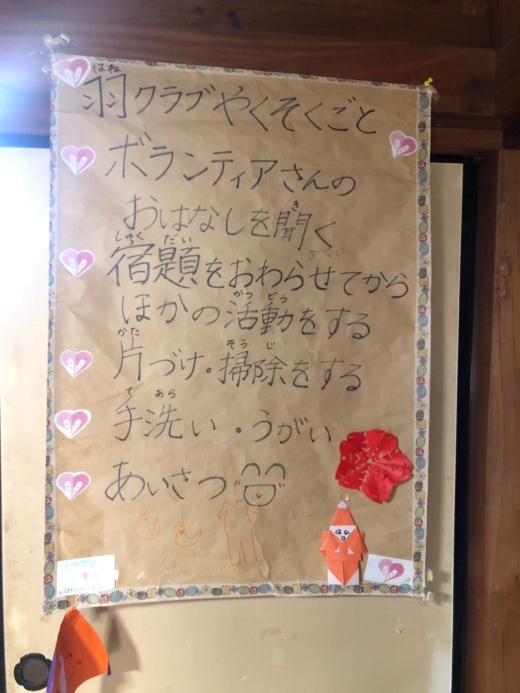 羽クラブやくそくごと
ボランティアさんの
おはなしを聞く
宿題をおわらせてから
ほかの活動をする
片づけ・掃除をする
手洗い・うがい
あいさつ